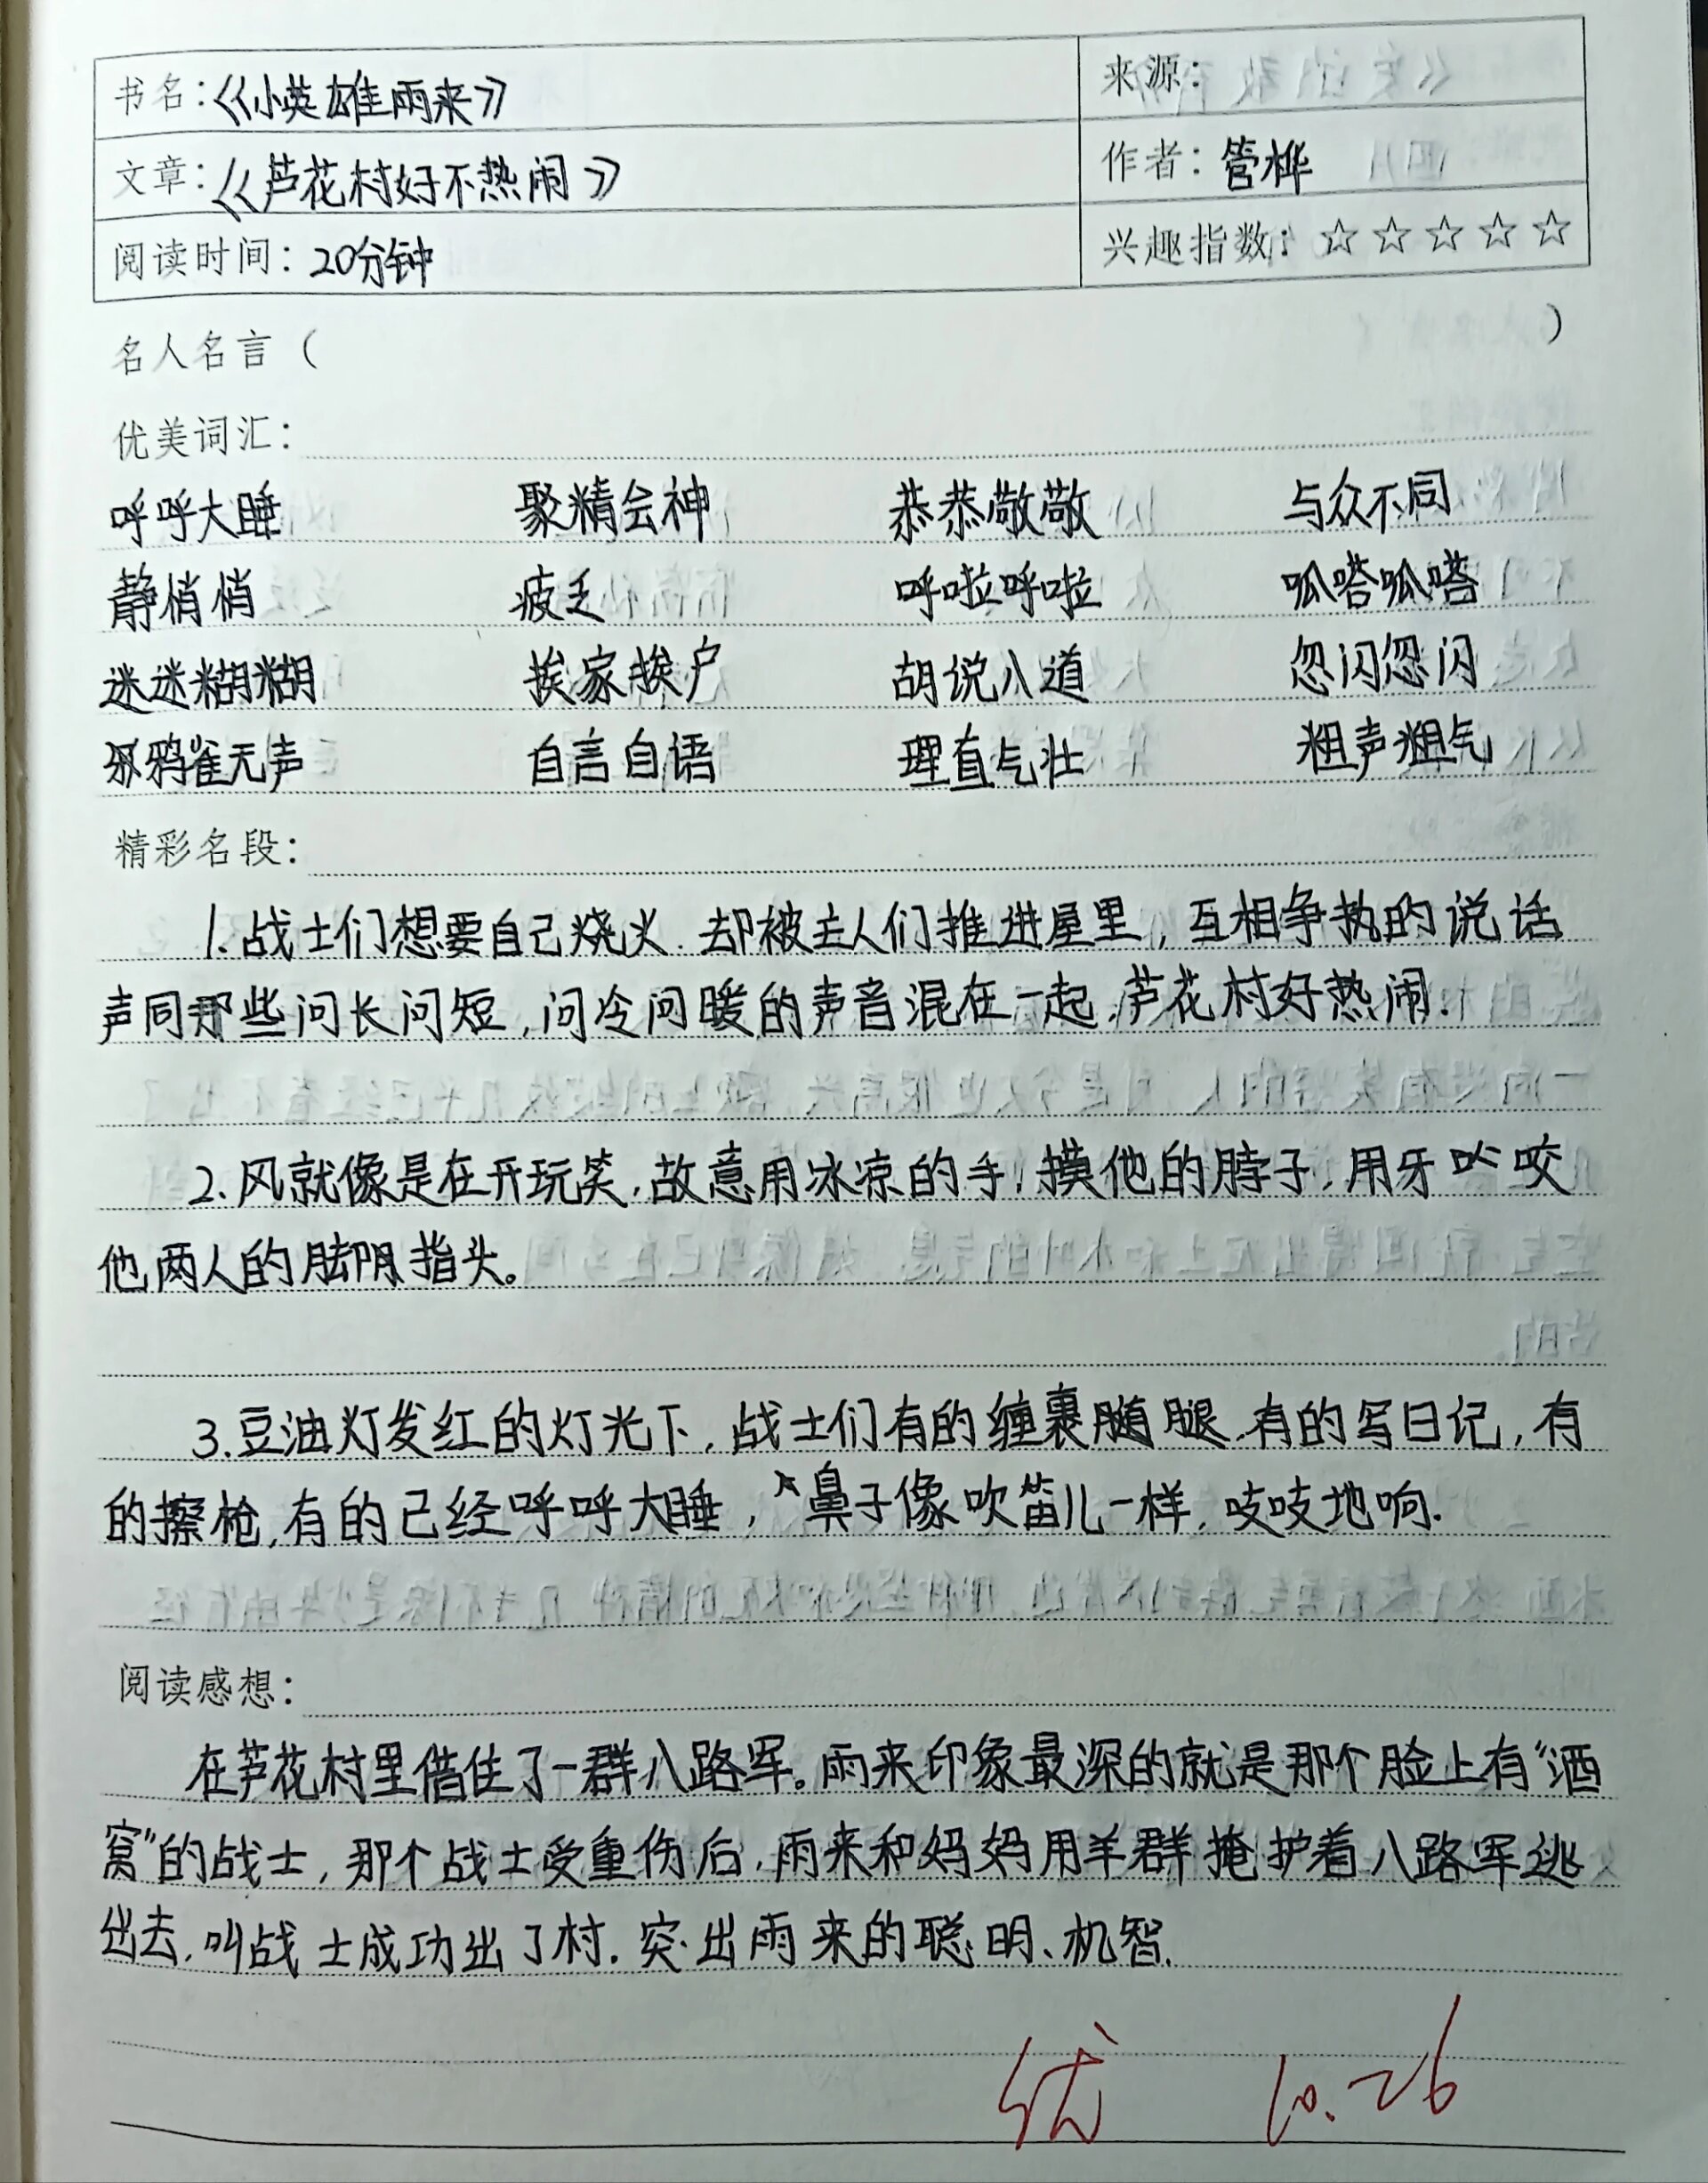 书名:《小英雄雨来》 来源:
文章:《芦花村好不热闹》 作者:管桦
阅读时间:20分钟 兴趣指数:☆☆☆☆☆
名人名言( )
优美词汇:
呼呼大睡 聚精会神 恭恭敬敬 与众不同
静悄悄 疲乏 呼啦呼啦 呱嗒呱嗒
迷迷糊糊 挨家挨户 胡说八道 忽闪忽闪
鸦雀无声 自言自语 理直气壮 粗声粗气
精彩名段:
1.战士们想要自己烧火.却被主人们推进屋里,互相争执的说话
声同那些问长问短,问冷问暖的声音混在一起,芦花村好热闹!
2.风就像是在开玩笑,故意用冰凉的手,摸他的脖子,用牙咬
他两人的脚指头。
3.豆油灯发红的灯光下,战士们有的缠裹腿,有的写日记,有
的擦枪,有的已经呼呼大睡,鼻子像吹笛儿一样,吱吱地响.
阅读感想:
在芦花村里借住了一群八路军。雨来印象最深的就是那个脸上有“酒
窝”的战士,那个战士受重伤后,雨来和妈妈用羊群掩护着八路军逃
出去,叫战士成功出了村.突出雨来的聪明、机智.
优 10.26